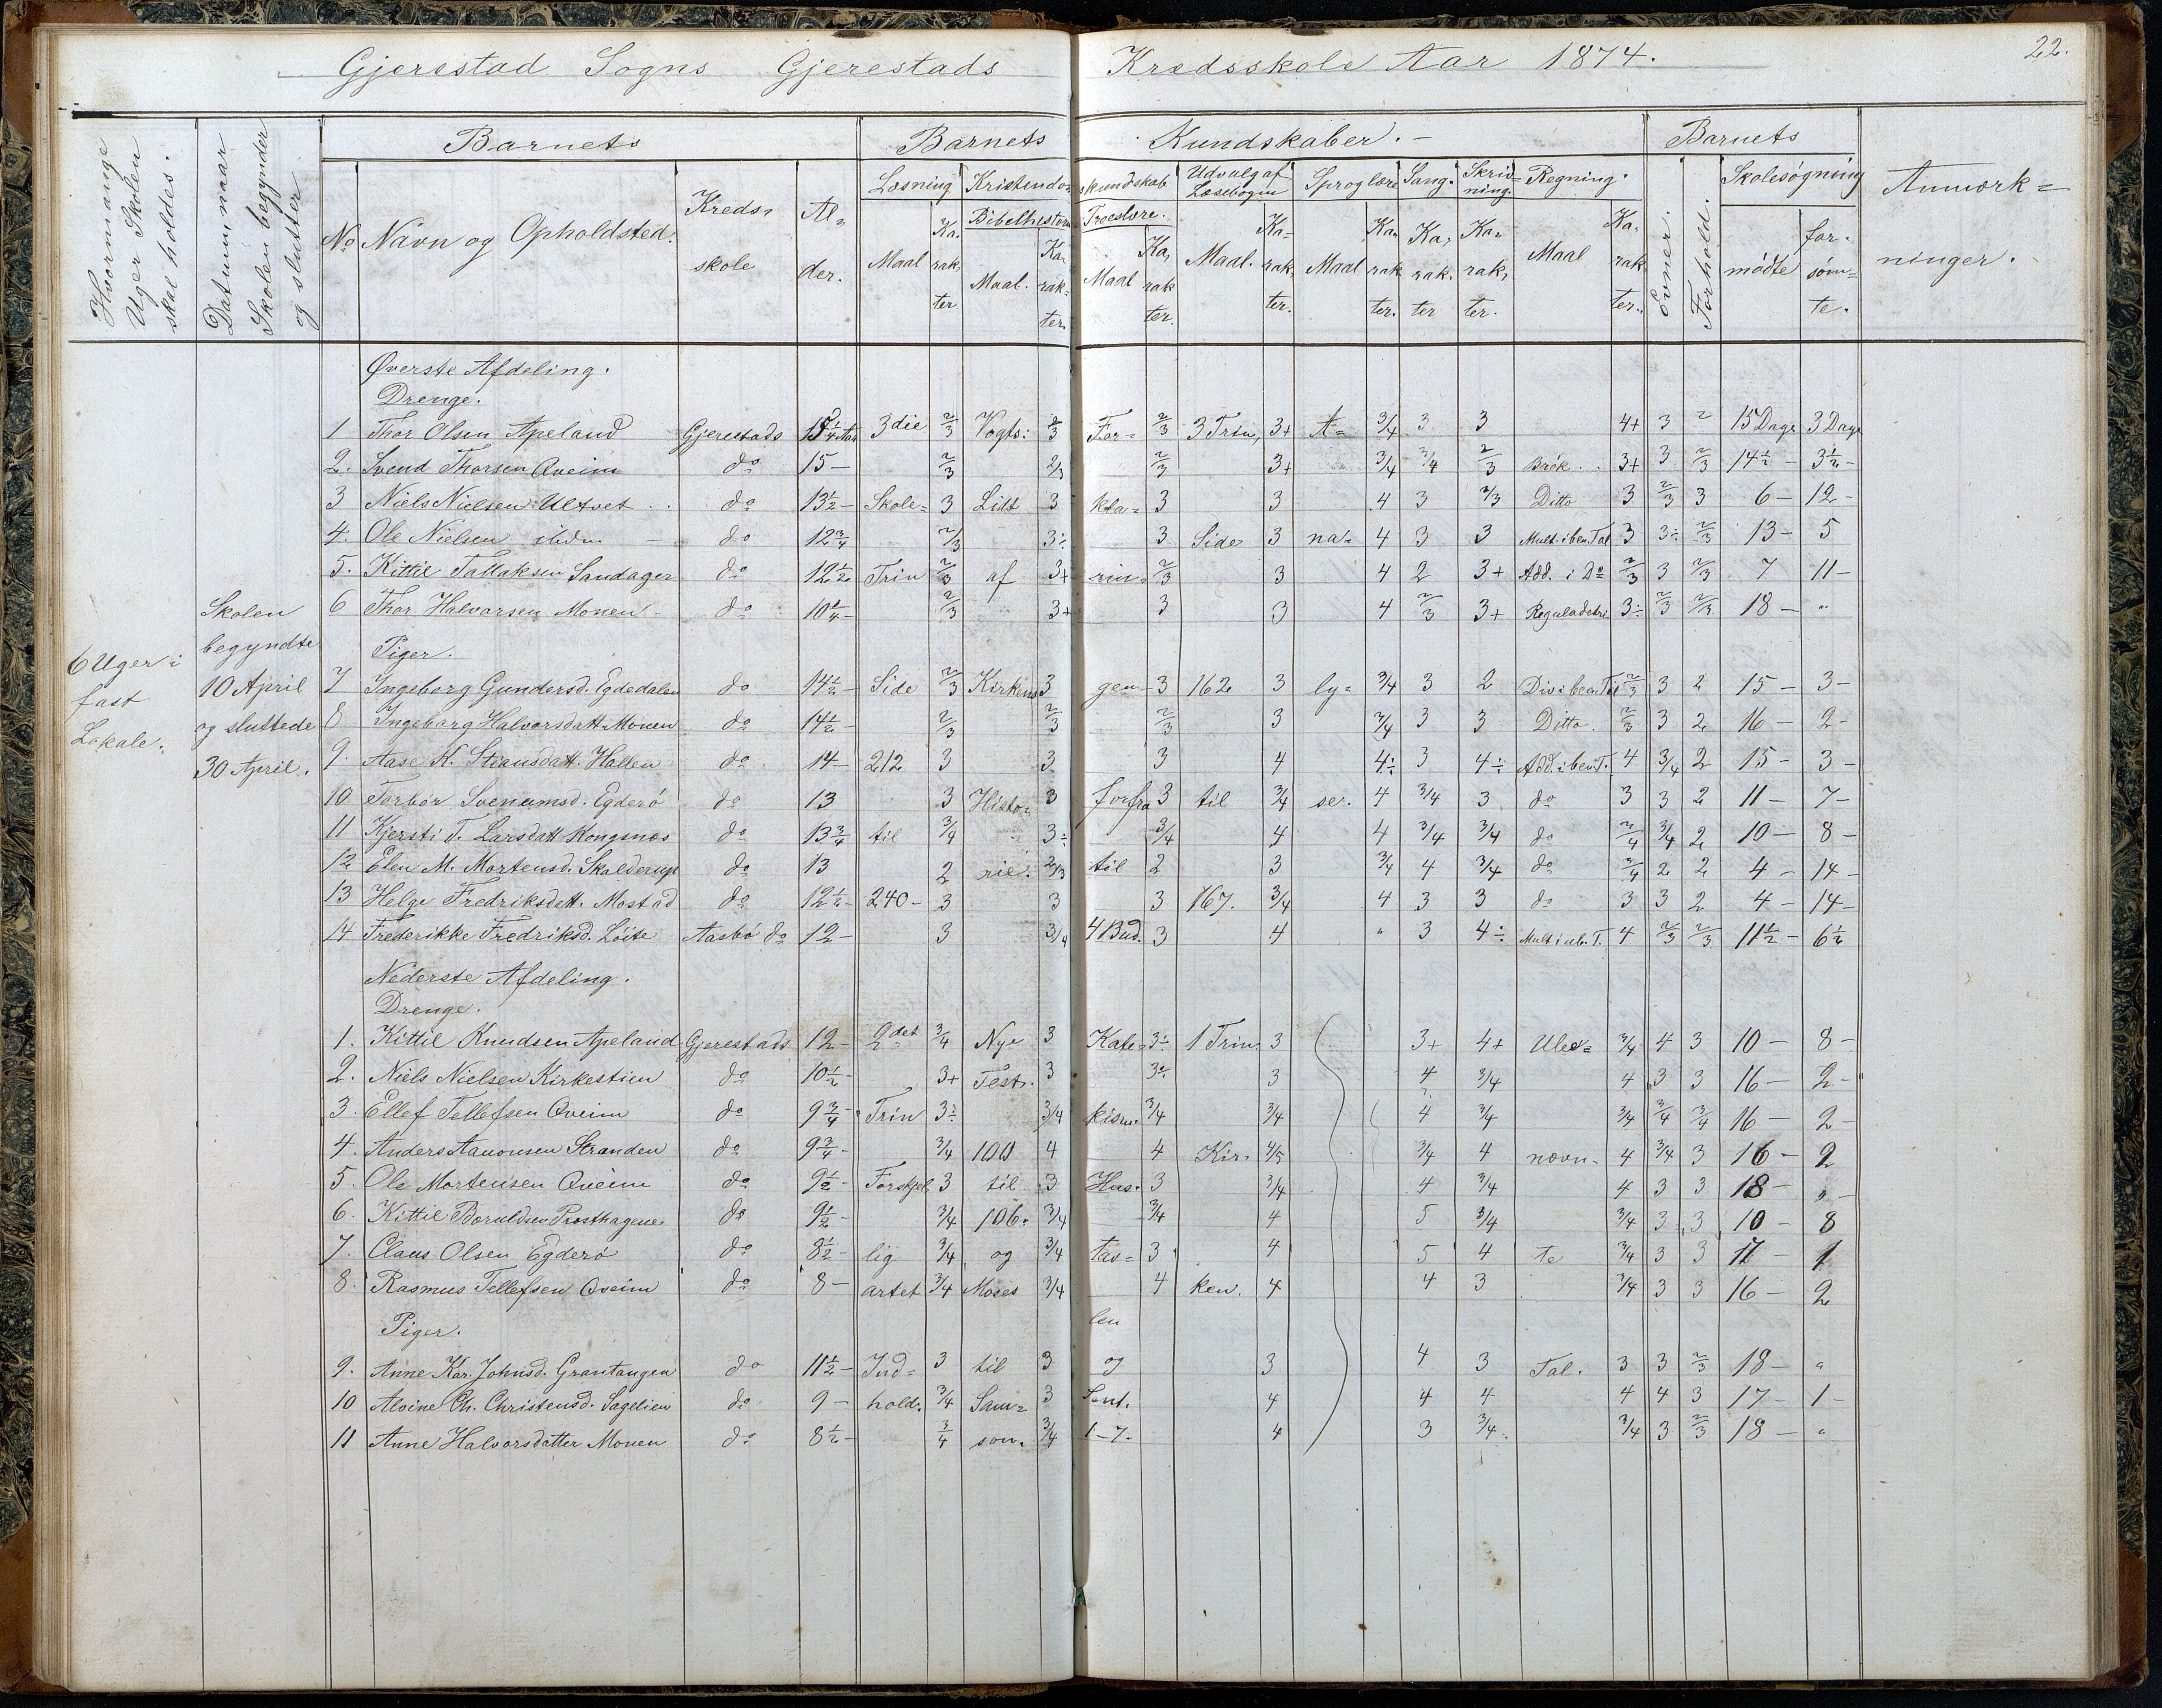 Gjerestad Sogns Gjerestads Kredsskole Aar 1874. 22.
Hvormange Uger Skolen skal holdes.
Datum, naar Skolen begynder og slutter
Barnets Barnets Kundskaber. Barnets
Læsning Kristendomskundskab Udvalg af Læsebogen Sproglære Sang. Skrivning. Regning. Skolesøgning Anmærkninger.
No Navn og Opholdsted. Kredsskole Alder. Bibelhistorie Troeslære. Evner. Forhold. mødte forsømte.
Maal Karakter. Maal. Karakter. Maal Karakter. Maal. Karakter. Maal Karakter. Karakter Karakter. Maal Karakter.
6 Uger i fast Lokale.
Skolen begyndte 10 April og sluttede 30 April.
Øverste Afdeling.
Drenge.
1 Thor Olsen Apeland Gjerestads 15 1/4 Aar 3die 2/3 Vogts: 2/3 For= 2/3 3 Trin, 3+ A= 3/4 3 3 4+ 3 2 15 Dage 3 Dage
2. Svend Thorsen Qveim do 15 – 2/3 2/3 2/3 3+ 3/4 3/4 2/3 Brøk. 3+ 3 2/3 14 1/2 – 3 1/2 –
3 Niels Nielsen Ultvet do 13 1/2 – Skole= 3 Lidt 3 kla= 3 3 4 3 2/3 Ditto 3 2/3 3 6 – 12 –
4. Ole Nielsen do 12 3/4 2/3 3÷ 3 Side 3 na= 4 3 3 Mult. i ben. Tal 3 3÷ 2/3 13 – 5
5. Kittil Tallaksen Sandager do 12 1/2 Trin 2/3 af 3+ rin= 2/3 3 4 2 3+ Add. i Do 2/3 3 2/3 7 11 –
6 Thor Halvorsen Monen do 10 1/4 – 2/3 3+ 3 3 4 2/3 3+ Reguladetri 3÷ 2/3 2/3 18 – "
Piger.
7 Ingeborg Gundersd. Egdedalen do 14 1/2 – Side 2/3 Kirkens 3 gen 3 162 3 ly= 3/4 3 2 Div i ben. Tal 2/3 3 2 15 – 3 –
8 Ingeborg Halvorsdatt. Monen do 14 1/2 – 2/3 2/3 2/3 3 3/4 3 3 Ditto. 2/3 3 2 16 – 2 –
9. Aase K. Stiansdatt. Hallen do 14 – 212 3 3 3 4 4÷ 3 4÷ Add. i ben. T. 4 3/4 2 15 – 3 –
10 Torbør Svenumsd. Egderø do 13 3 Histo= 3 forfra 3 til 3/4 ser. 4 3/4 3 do 3 3 2 11 – 7 –
11 Kjersti T. Larsdatt Kongsnæs do 13 3/4 til 3/4 3÷ 3/4 4 4 3/4 3/4 do 3/4 3/4 2 10 – 8 –
12 Elen M. Mortensd. Skalderup do 13 2 rie. 2/3 til 2 3 3/4 4 3/4 do 3/4 2 2 4 – 14 –
13 Helge Fredriksdatt. Mostad do 12 1/2 – 240 – 3 3 3 167. 3/4 4 3 3 do 3 3 2 4 – 14 –
14 Frederikke Fredriksd. Löite Aasbø do 12 – 3 3/4 4 Bud. 3 4 " 3 4÷ Mult i ub. T. 4 2/3 2/3 11 1/2 – 6 1/2
Nederste Afdeling.
Drenge.
1. Kittil Knudsen Apeland Gjerestads 12 – 2det 3/4 Nye 3 Kate= 3÷ 1 Trin 3 3+ 4+ Ube= 3/4 4 3 10 – 8 –
2. Niels Nielsen Kirkestien do 10 1/2 – 3+ Test. 3 3÷ 3 4 3/4 4 3 3 16 – 2 –
3. Ellef Tellefsen Qveim do 9 3/4 – Trin 3÷ 3/4 kism. 3/4 3/4 4 3/4 3/4 3/4 3/4 16 – 2 –
4. Anders Aanonsen Stranden do 9 3/4 – 3/4 100 4 4 Kir= 4/5 3/4 4 nævn= 4 3/4 3 16 – 2
5. Ole Mortensen Qveim do 9 1/2 – Forskjel 3 til 3 Hus= 3 3/4 4 3/4 4 3 3 18 – "
6. Kittil Boruldsen Presthagene do 9 1/2 – 3/4 106. 3/4 3/4 4 5 3/4 3/4 3 3 10 – 8
7. Claus Olsen Egderø do 8 1/2 – lig 3/4 og 3/4 tav= 3 4 5 4 te 3/4 3 3 17 – 1
8. Rasmus Tellefsen Qveim do 8 – artet 3/4 Moses 3/4 4 ken. 4 4 3 3/4 3 3 16 – 2
Piger. len
9. Anne Kar. Johnsd. Grantangen do 11 1/2 – Ind= 3 til 3 og 3 4 3 Tal. 3 3 2/3 18 – "
10 Alvine Ch. Christensd. Sagelien do 9 – hold. 3/4 Sam= 3 Sent. 4 4 4 4 4 3 17 – 1 –
11 Anne Halvorsdatter Monen do 8 1/2 – 3/4 son. 3/4 1–7. 4 3 3/4 3/4 3 2/3 18 – "